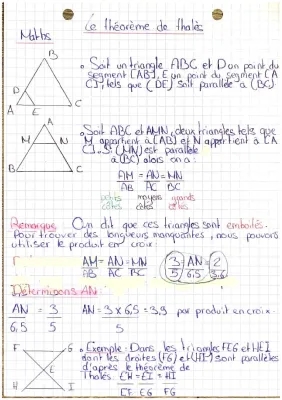 Le théorème de thalès
Maths
B
D
A E C
• Soit un triangle ABC et D un point du
segment [AB], E un point du segment [A
C], tels que (DE) soit parallèle à (BC)
A
M N
B C
• Soit ABC et AMN, deux triangles tels que
M appartient à [AB] et N appartient à [A
C]. Si (MN) est parallèle
à (BC) alors on a:
AM = AN = MN
AB AC BC
petits moyens grands
côtés côtés côtés
Remarque On dit que ces triangles sont emboîtés.
Pour trouver des longueurs manquantes, nous pouvons
utiliser le produit en croix:
AM = AN = MN
AB AC BC
3 = AN = 2
5 6,5 3,6
Déterminons AN:
AN = 3
6,5 5
AN = 3 x 6,5 = 3,9 par produit en croix.
5
F G
E
H I
• Exemple: Dans les triangles FEG et HEI
dont les droites (FG) et (HI) sont parallèles
d'après le théorème de
thalès EH = EI = HI
EF EG FG